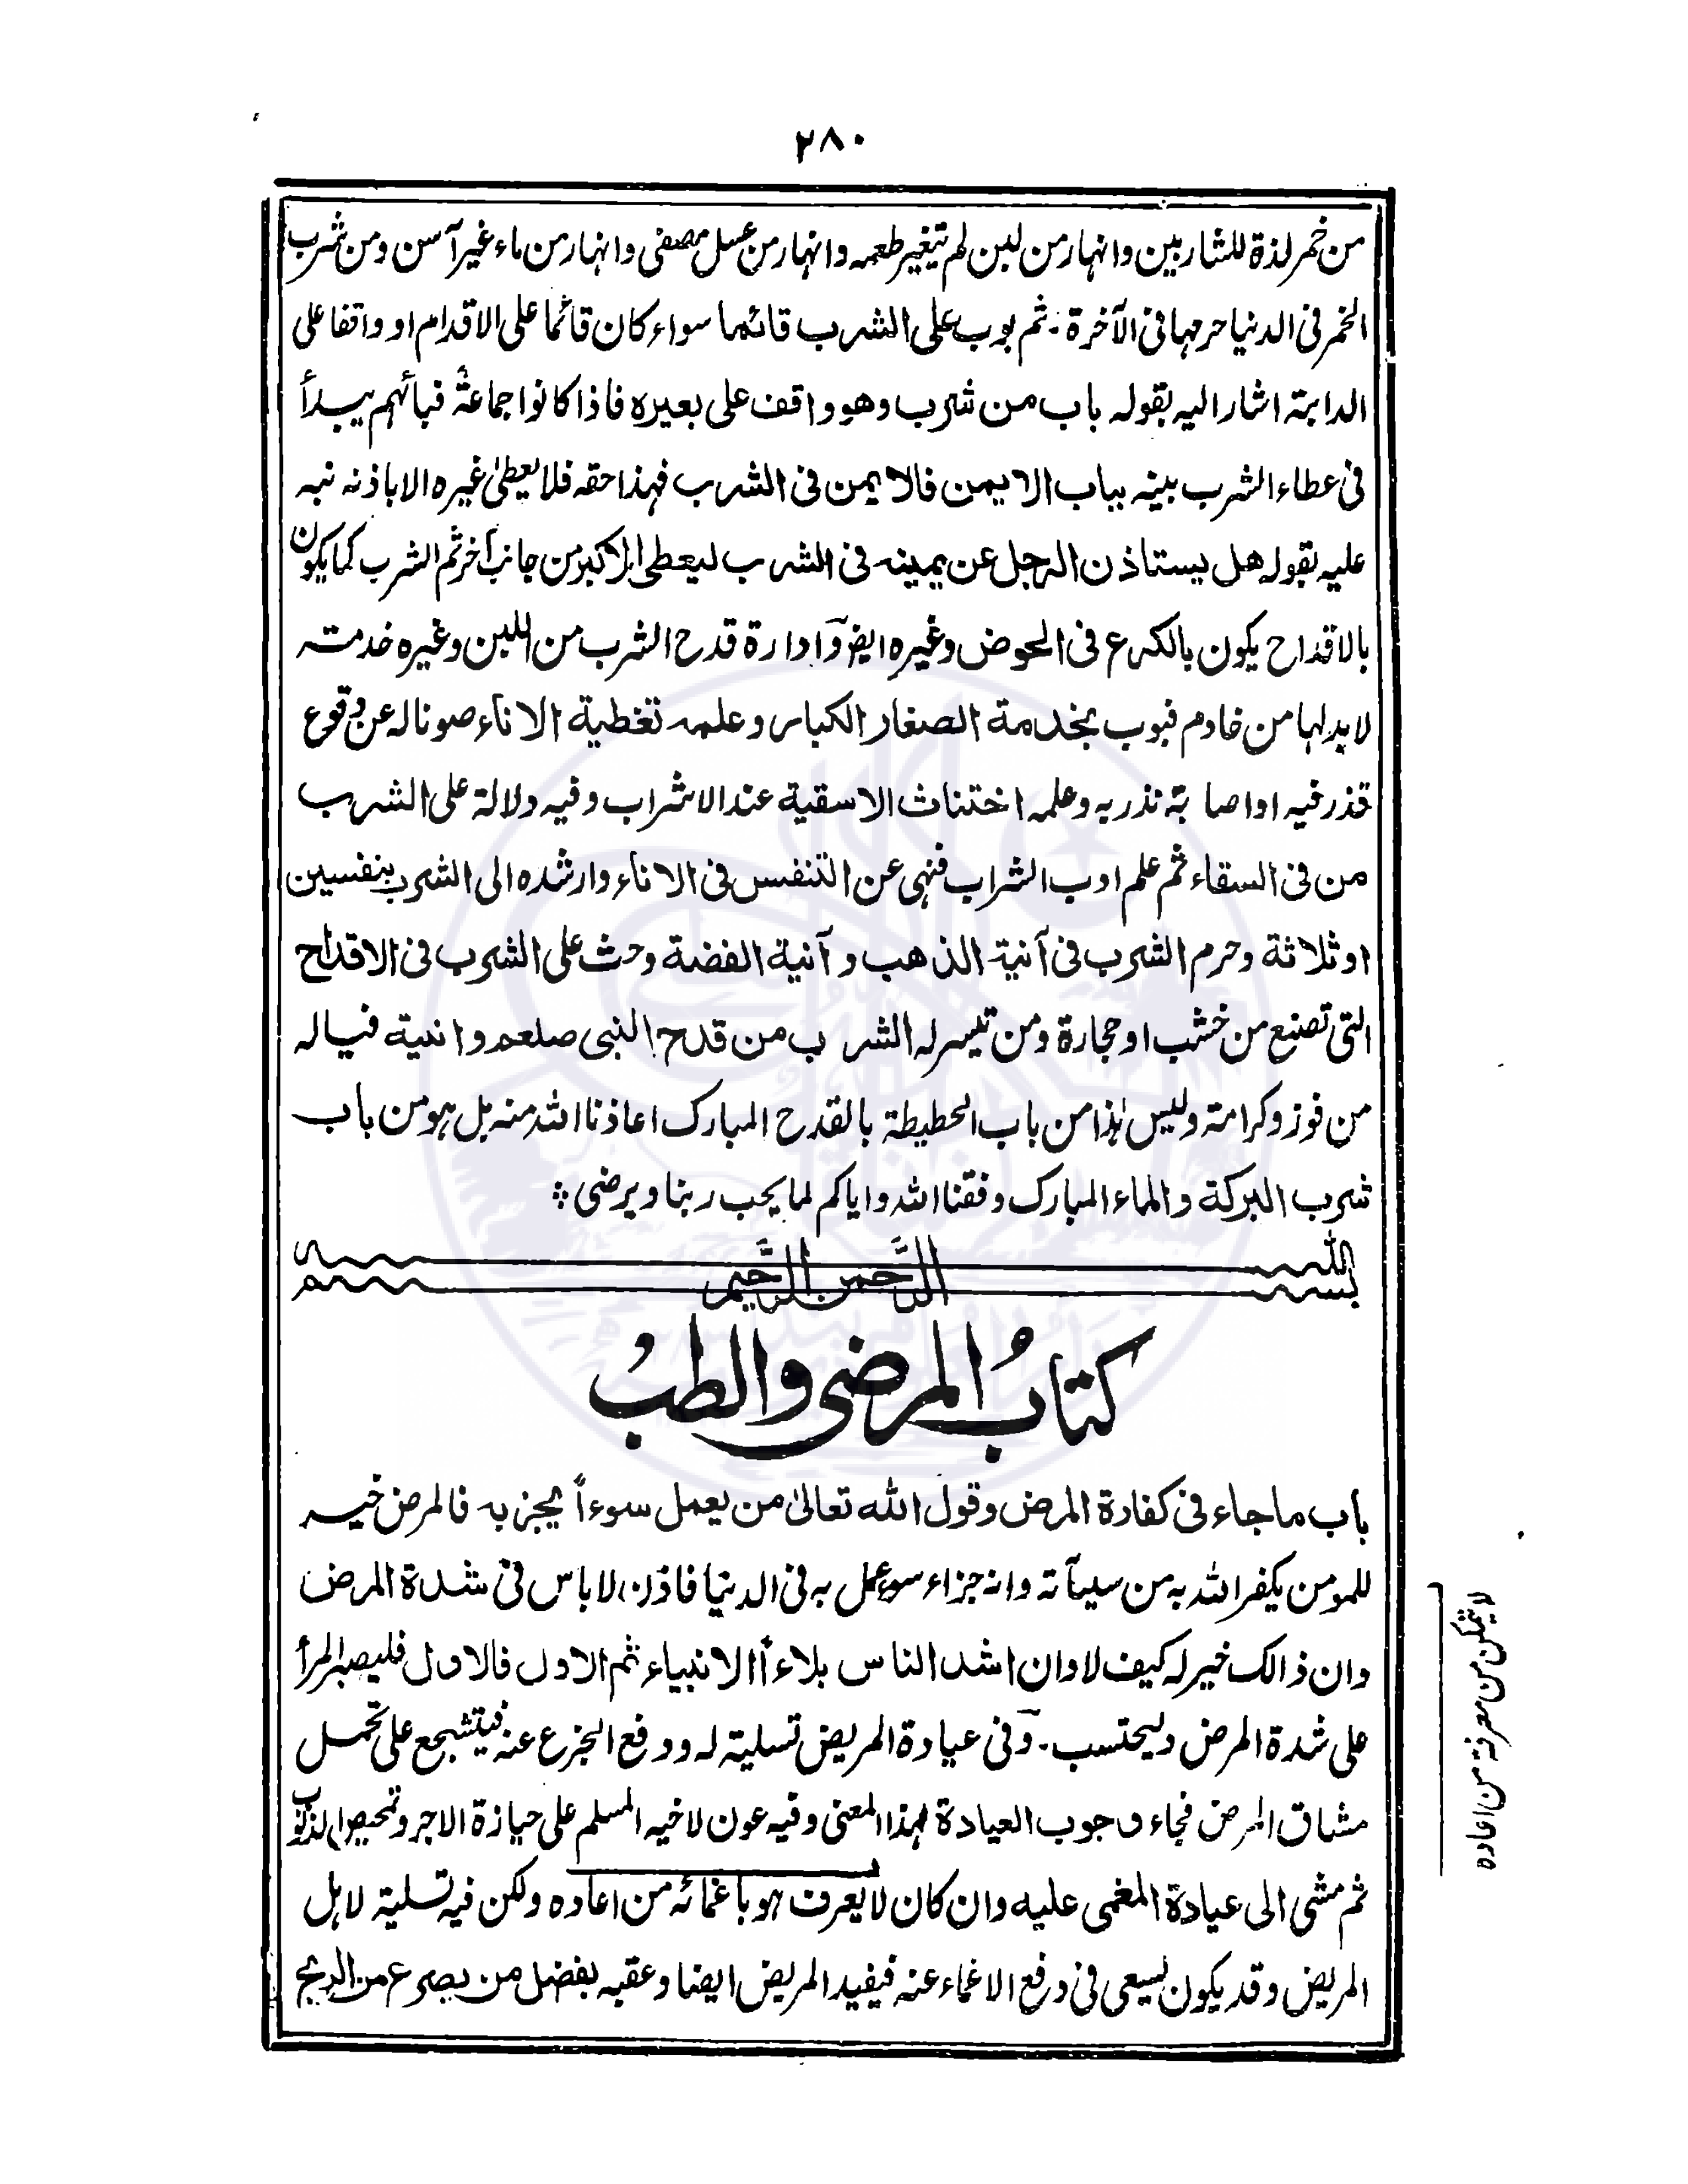 ۲۸۰
من خمر لذة للشاربين وانهار من لبن لم يتغير طعمه وانهار من عسل مصفى وانهار من ماء غير آسن ومن شرب
الخمر فى الدنيا حرمها فى الآخرة۔ ثم بوب على الشرب قائما سواء كان قائما على الاقدام او واقفا على
الدابة اشار اليه بقوله باب من شرب وهو واقف على بعيره فاذا كانوا جماعة فبأيهم يبدأ
فى عطاء الشرب بينه بباب الايمن فالايمن فى الشرب فهذا حقه فلا يعطى غيره الا باذنه نبه
عليه بقوله هل يستاذن الرجل عن يمينه فى الشرب ليعطى الاكبر من جانب آخر ثم الشرب كما يكون
بالاقداح يكون بالكرع فى الحوض وغيره ايضا وادارة قدح الشرب من اللبن وغيره خدمة
لابد لها من خادم فبوب بخدمة الصغار الكبار وعلمه تغطية الاناء صونا له عن وقوع
قذر فيه او اصابة نذر به وعلمه اختناث الاسقية عند الاشراب وفيه دلالة على الشرب
من فى السقاء ثم علم ادب الشراب فنهى عن التنفس فى الاناء وارشده الى الشرب بنفسين
او ثلاثة وحرم الشرب فى آنية الذهب و آنية الفضة وحث على الشرب فى الاقداح
التى تصنع من خشب او حجارة ومن تيسر له الشرب من قدح النبى صلعم وانية فياله
من فوز وكرامة وليس هذا من باب الحطيطة بالقدح المبارك اعاذنا الله منه بل هو من باب
شرب البركة والماء المبارك وفقنا الله واياكم لما يحب ربنا ويرضى
بسم الله الرَّحمن الرَّحيم
كتابُ المرضى والطبُ
باب ما جاء فى كفارة المرض وقول الله تعالىٰ من يعمل سوءاً يجز به فالمرض خير
للمومن يكفر الله به من سيآته وانه جزاء سوء عمل به فى الدنيا فاذن لا باس فى شدة المرض
وان ذالك خير له كيف لا وان اشد الناس بلاءاً الانبياء ثم الاول فالاول فليصبر المرأ
على شدة المرض وليحتسب۔ وفى عيادة المريض تسلية له ودفع الجزع عنه فيتشجع على تحمل
مشاق المرض فجاء وجوب العيادة لهذا المعنى وفيه عون لاخيه المسلم على حيازة الاجر وتمحيص الذنوب
ثم مشى الى عيادة المغمى عليه وان كان لا يعرف هو باغمائه من اعاده ولكن فيه تسلية لاهل
المريض وقد يكون يسعى فى دفع الاغماء عنه فيفيد المريض ايضا وعقبه بفضل من يصرع من الريح
لا يتمكن من معرفة من اعاده